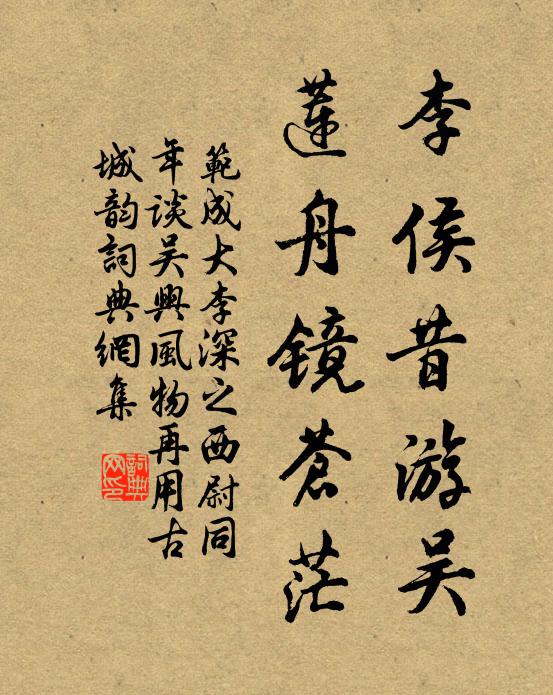 李侯昔游吴
莲舟镜苍茫
範成大李深之西尉同
年谈吴興風物再用古
城韵詞典網集
詞典
网印